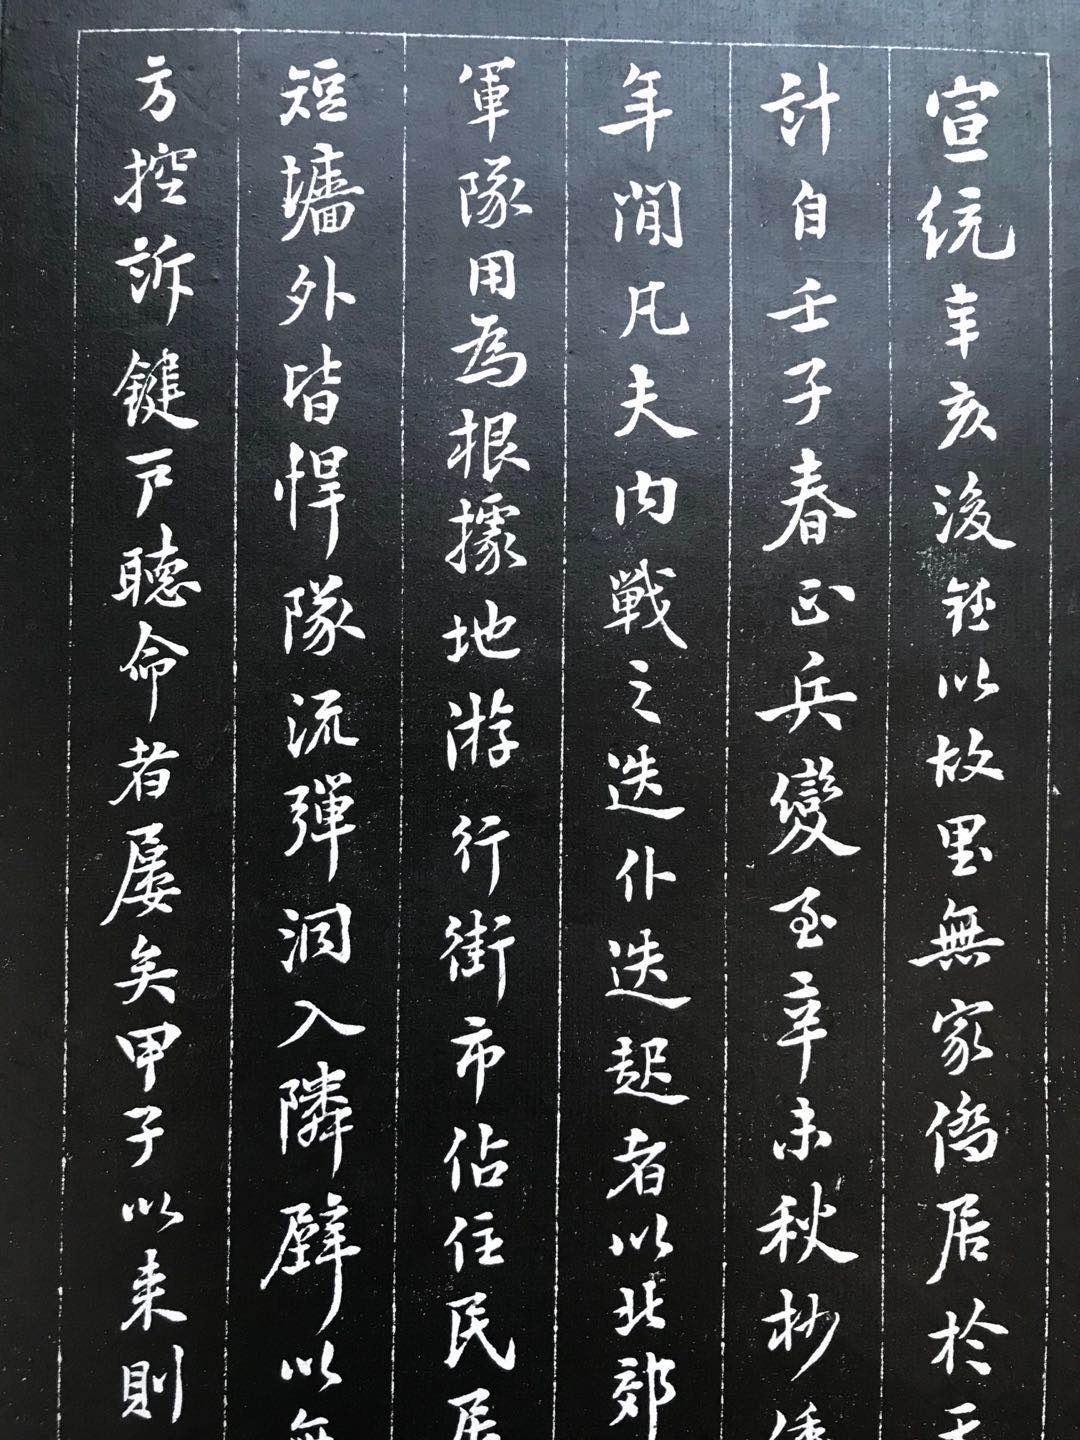 宣統辛亥後鈺以故里無家僑居於天
計自壬子春正兵變至辛未秋杪
年閒凡夫内戰之迭仆迭起者以北郊
軍隊用為根據地游行街市佔住民居
短墻外皆悍隊流彈洞入隣壁以無
方控訴鍵戶聽命者屢矣甲子以来則